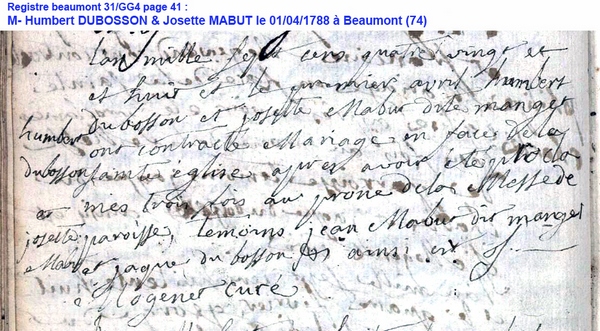 Registre beaumont 31/GG4 page 41 :
M- Humbert DUBOSSON & Josette MABUT le 01/04/1788 à Beaumont (74)
Lan mille sept cens quatre vingt et
et huit et le premier avril humbert
dubosson et josette Mabut dite manget
ont contracté Mariage en face de la
sainte église apres avoir été procla
mes trois fois au prone de la Messe de
paroisse, temoins jean Mabut dit manget
et jaque du bosson ainsi est
Mogenet curé
humbert
dubosson
et
josette
Mabut